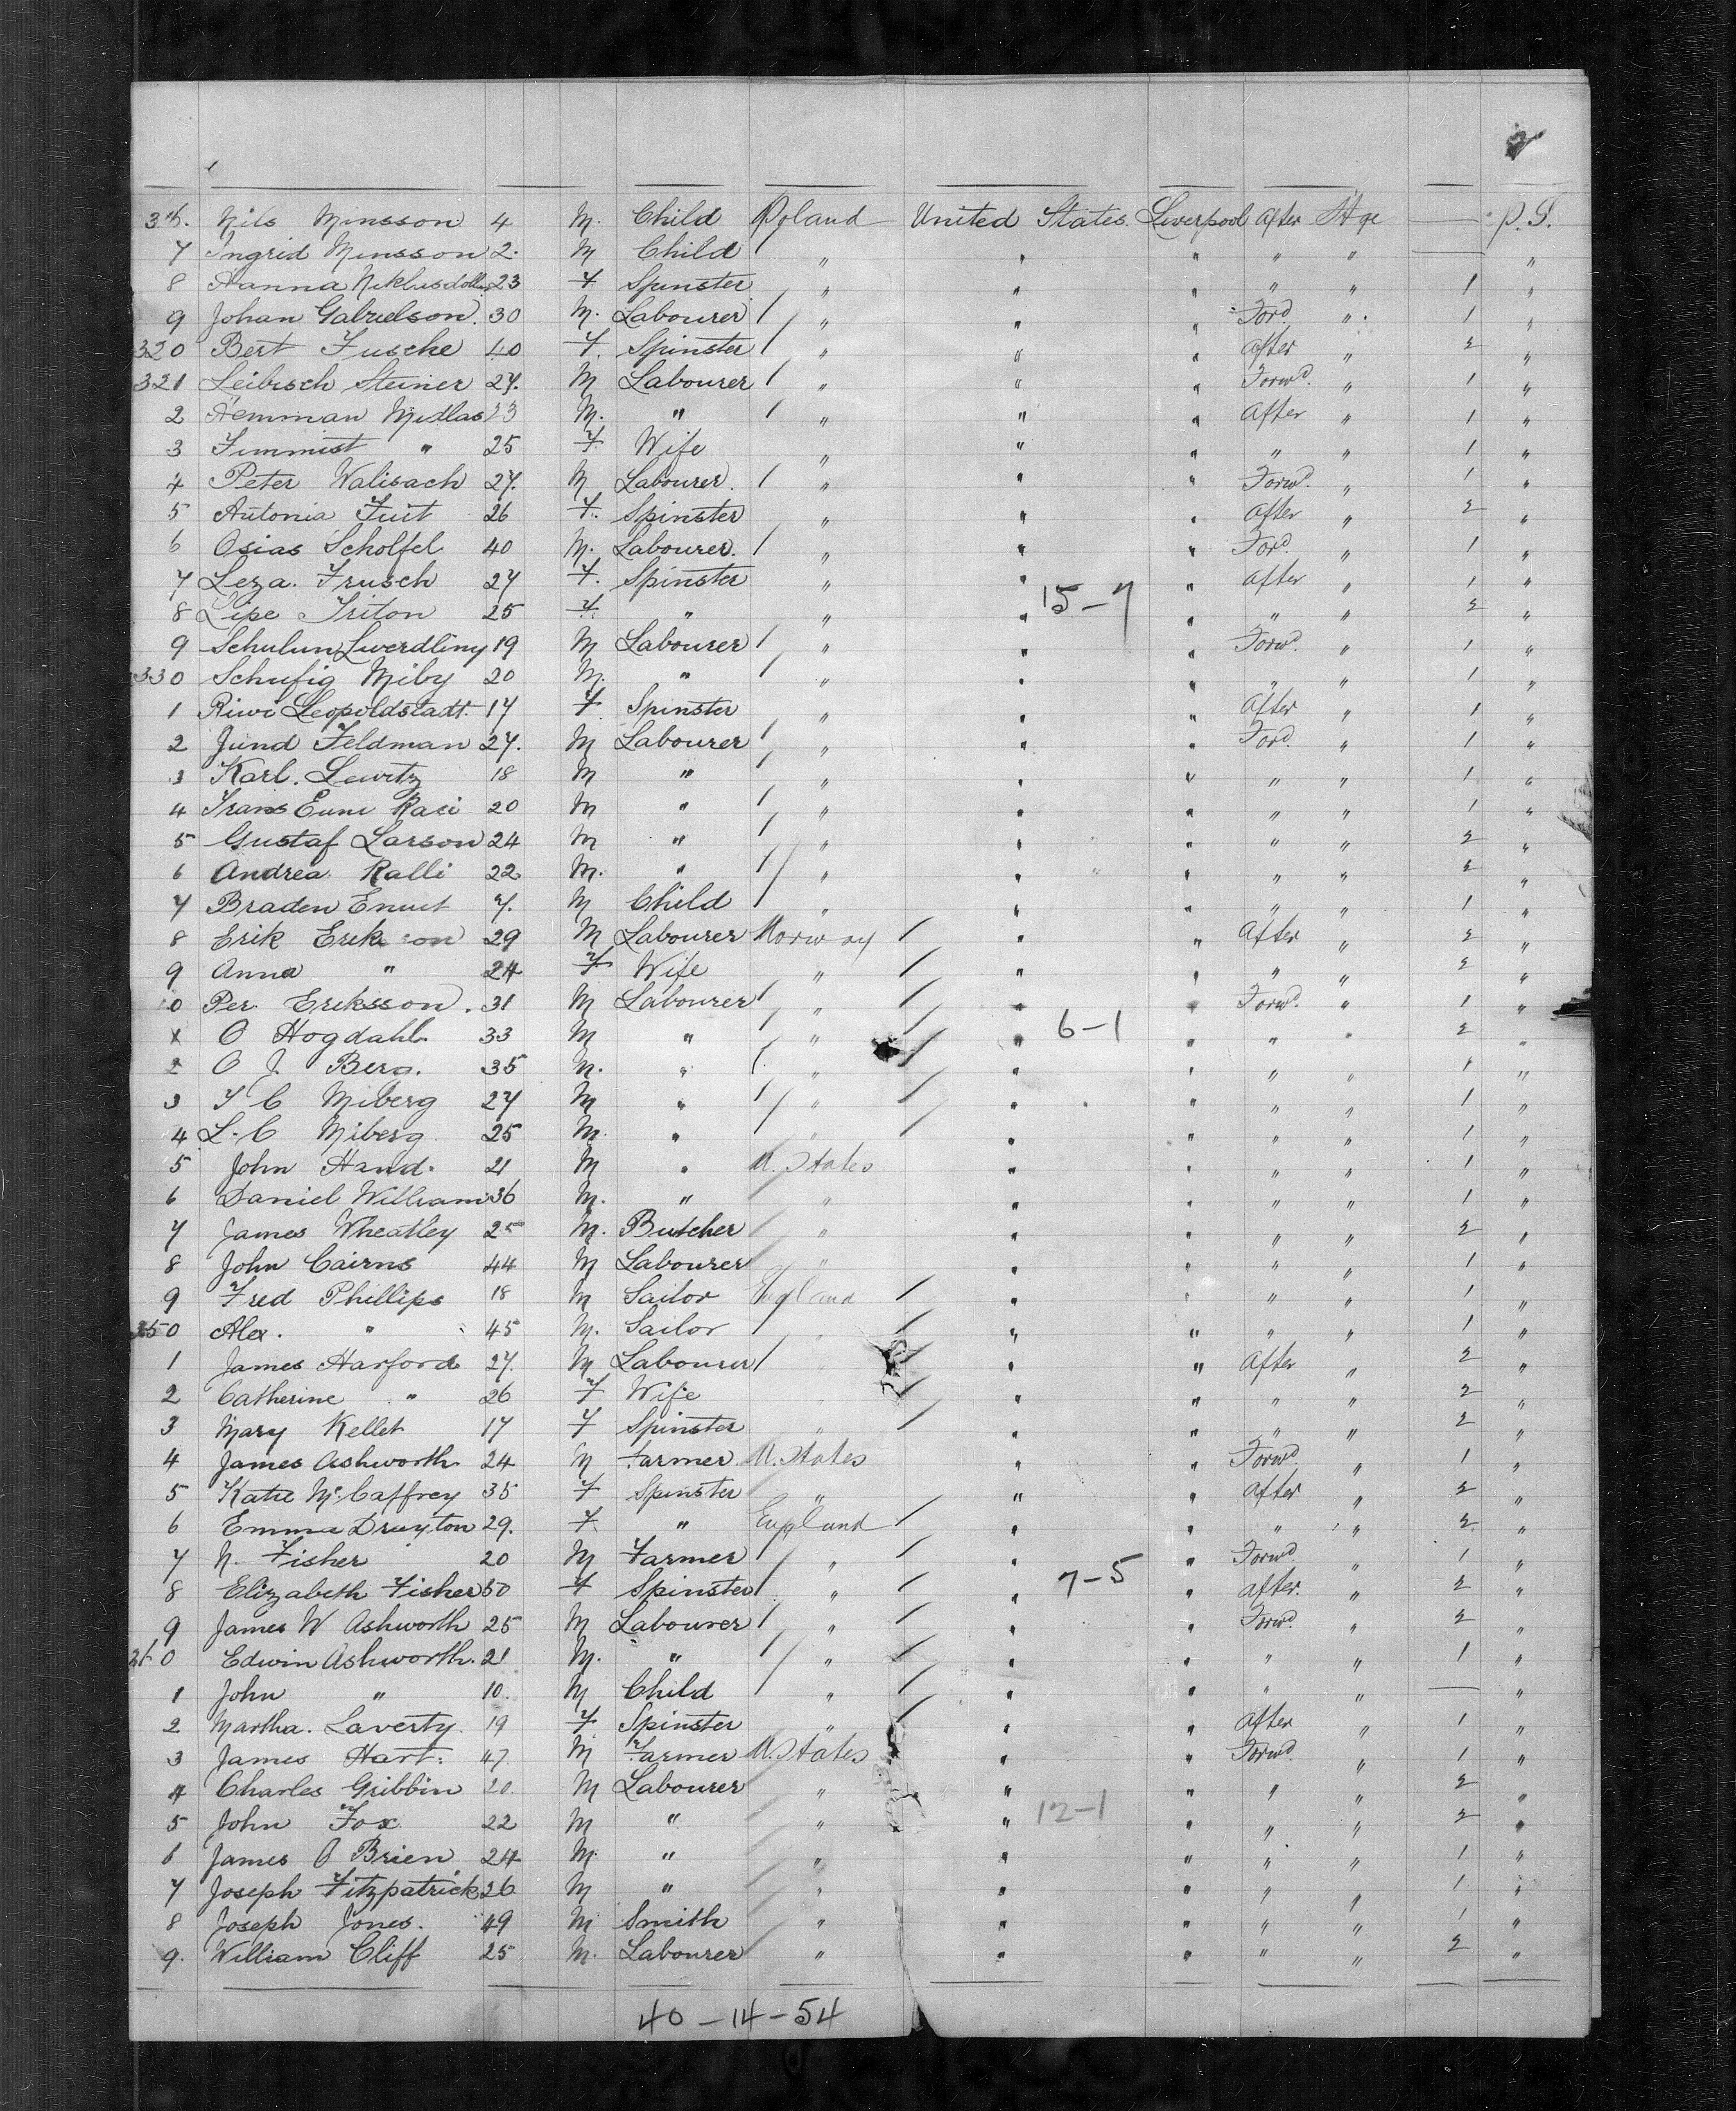 2
316. Nils Monsson 4 M. Child Poland United States. Liverpool After Stge — P.S.
7 Ingrid Monsson 2. M Child " " " " " — "
8 Hanna 23 F Spinster " " " " " 1 "
9 Johan Gabrielson. 30 M. Labourer / " " " Ford " 1 "
320 Bert Fusche 40 F. Spinster / " " " After " 2 "
321 Leibisch Steiner 27. M Labourer / " " " Forwd. " 1 "
2 Hemman Midlas 23 M. " / " " " After " 1 "
3 Fimmist " 25 F Wife " " " " " 1 "
4 Peter Walisach 27. M Labourer. / " " " Forwd. " 1 "
5 Antonia Fuit 26 F. Spinster " " " After " 2 "
6 Osias Scholfel 40 M. Labourer. / " " " Ford. " 1 "
7 Leza. Frusch 27 F. Spinster " " " After " 1 "
8 Lipe Triton 25 F. " " " 15-7 " " " 2 "
9 Schulun 19 M Labourer / " " " Forwd. " 1 "
330 Schufig Miby 20 M. " / " " " " " 1 "
1 Riwi Leopoldstadt. 17 F Spinster " " " After " 1 "
2 Jund Feldman 27. M Labourer / " " " Ford. " 1 "
3 Karl. Lewitz 18 M " / " " " " " 1 "
4 Frans Eum Raci 20 M " / " " " " " 1 "
5 Gustaf Larson 24 M " / " " " " " 2 "
6 Andrea Ralli 22 M. " / " " " " " 2 "
7 Braden Enuct 7. M Child / " " " " " 1 "
8 Erik Erikson 29 M Labourer Norway / " " After " 2 "
9 Anna " 24 F Wife " / " " " " 2 "
0 Per Eriksson. 31 M Labourer / " / " " Forwd. " 1 "
1 O Hogdahl. 33 M " / " / " 6-1 " " " 2 "
2 O J Berg. 35 M. " / " / " " " " 1 "
3 T C Miberg 27 M " / " / " " " " 1 "
4 L. C Miberg 25 M. " / " / " " " " 1 "
5 John Hand. 21 M " U. States " " " " 1 "
6 Daniel William 36 M. " " " " " " 1 "
7 James Wheatley 25 M. Butcher " " " " " 2 "
8 John Cairns 44 M Labourer " " " " " 1 "
9 Fred Phillips 18 M Sailor England / " " " " 1 "
350 Alex. " 45 M. Sailor / " / " " " " 1 "
1 James Harford 27. M Labourer / " / " " After " 2 "
2 Catherine " 26 F Wife " / " " " " 2 "
3 Mary Kellet 17 F Spinster " / " " " " 2 "
4 James Ashworth 24 M Farmer U. States " " Forwd. " 1 "
5 Katie McCaffrey 35 F Spinster " " " After " 2 "
6 Emma Drayton 29. F. " England / " " " " 2 "
7 N. Fisher 20 M Farmer / " / " " Forwd. " 1 "
8 Elizabeth Fisher 50 F Spinster / " / " 7-5 " After. " 2 "
9 James W Ashworth 25 M Labourer / " / " " Forwd. " 2 "
360 Edwin Ashworth. 21 M. " / " / " " " " 1 "
1 John " 10. M Child / " / " " " " — "
2 Martha. Laverty. 19 F Spinster " / " " After " 1 "
3 James Hart. 47 M Farmer U. States " " Forwd. " 1 "
4 Charles Gribbin 20. M Labourer " " " " " 2 "
5 John Fox 22 M " " " 12-1 " " " 2 "
6 James O Brien 24 M. " " " " " " 1 "
7 Joseph Fitzpatrick 26 M " " " " " " 1 "
8 Joseph Jones. 49 M Smith " " " " " 1 "
9. William Cliff 25 M. Labourer " " " " " 2 "
40-14-54